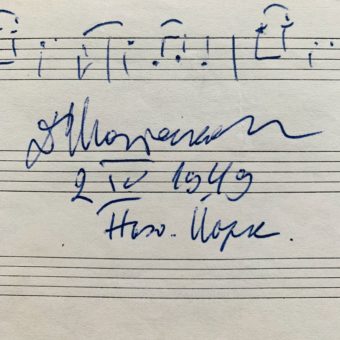 ДШостакович
2 IV 1949
Нью-Йорк.